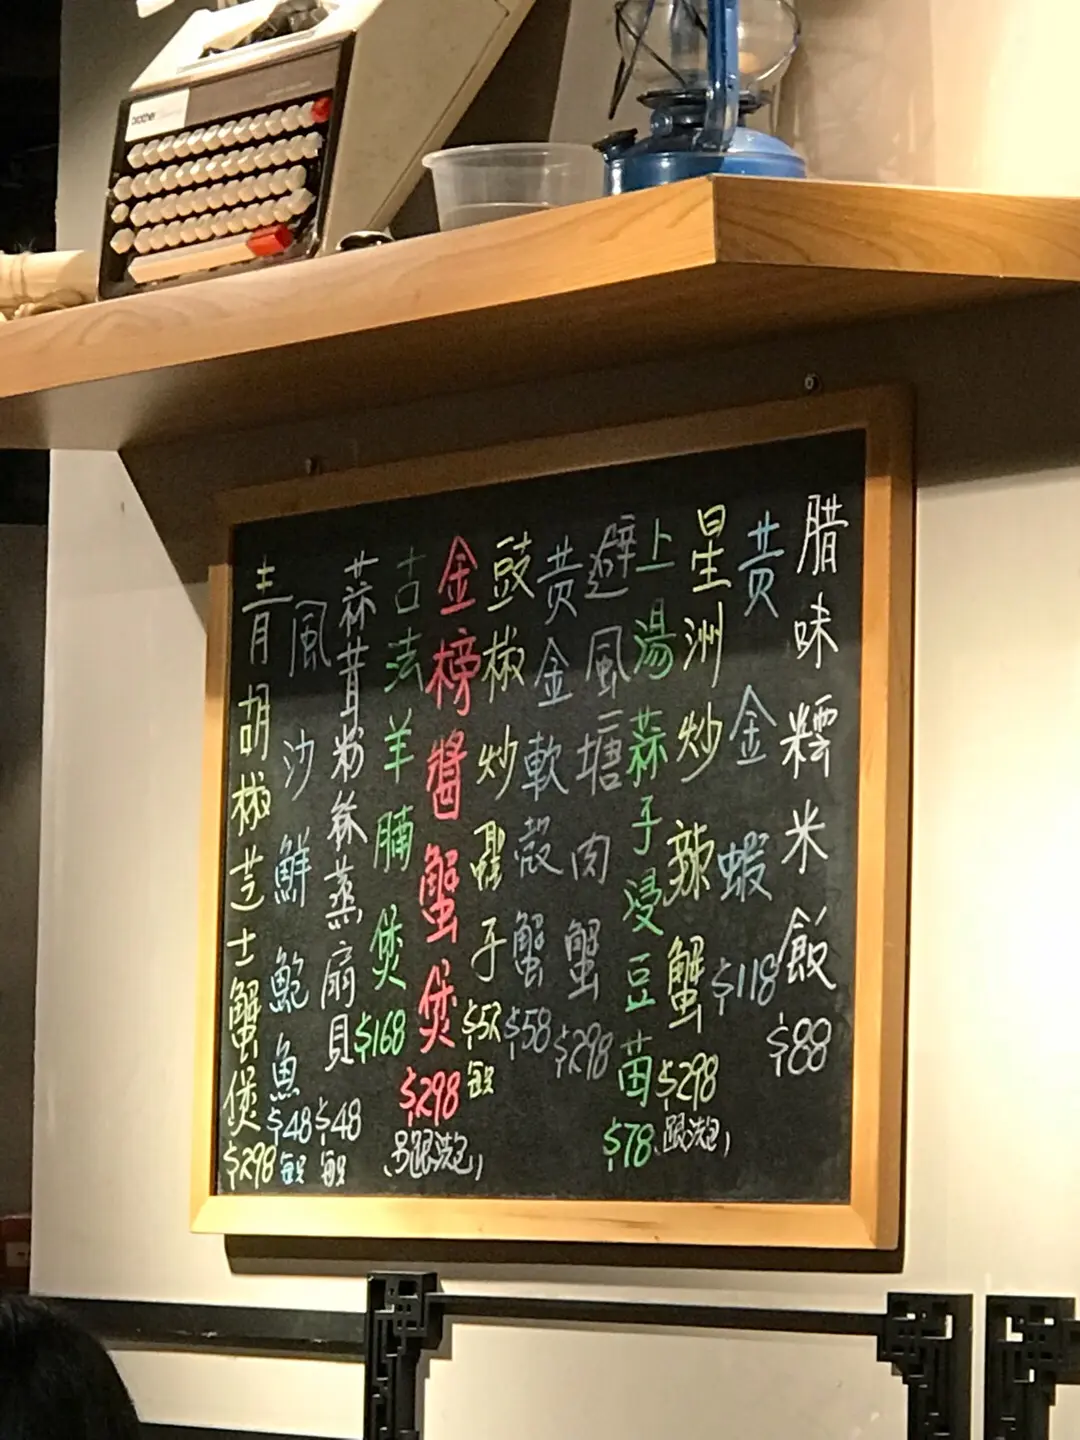 brother
腊味糯米飯 $88
黄金蝦 $118
星洲炒辣蟹 $298
(跟洗包)
上湯蒜子浸豆苗 $78
避風塘肉蟹 $298
黄金軟殼蟹 $58
豉椒炒蟶子 $52
每只
金榜醬蟹煲 $298
(另跟洗包)
古法羊腩煲 $168
蒜茸粉絲蒸扇貝 $48
每只
風沙鮮鮑魚 $48
每只
青胡椒芝士蟹煲 $298